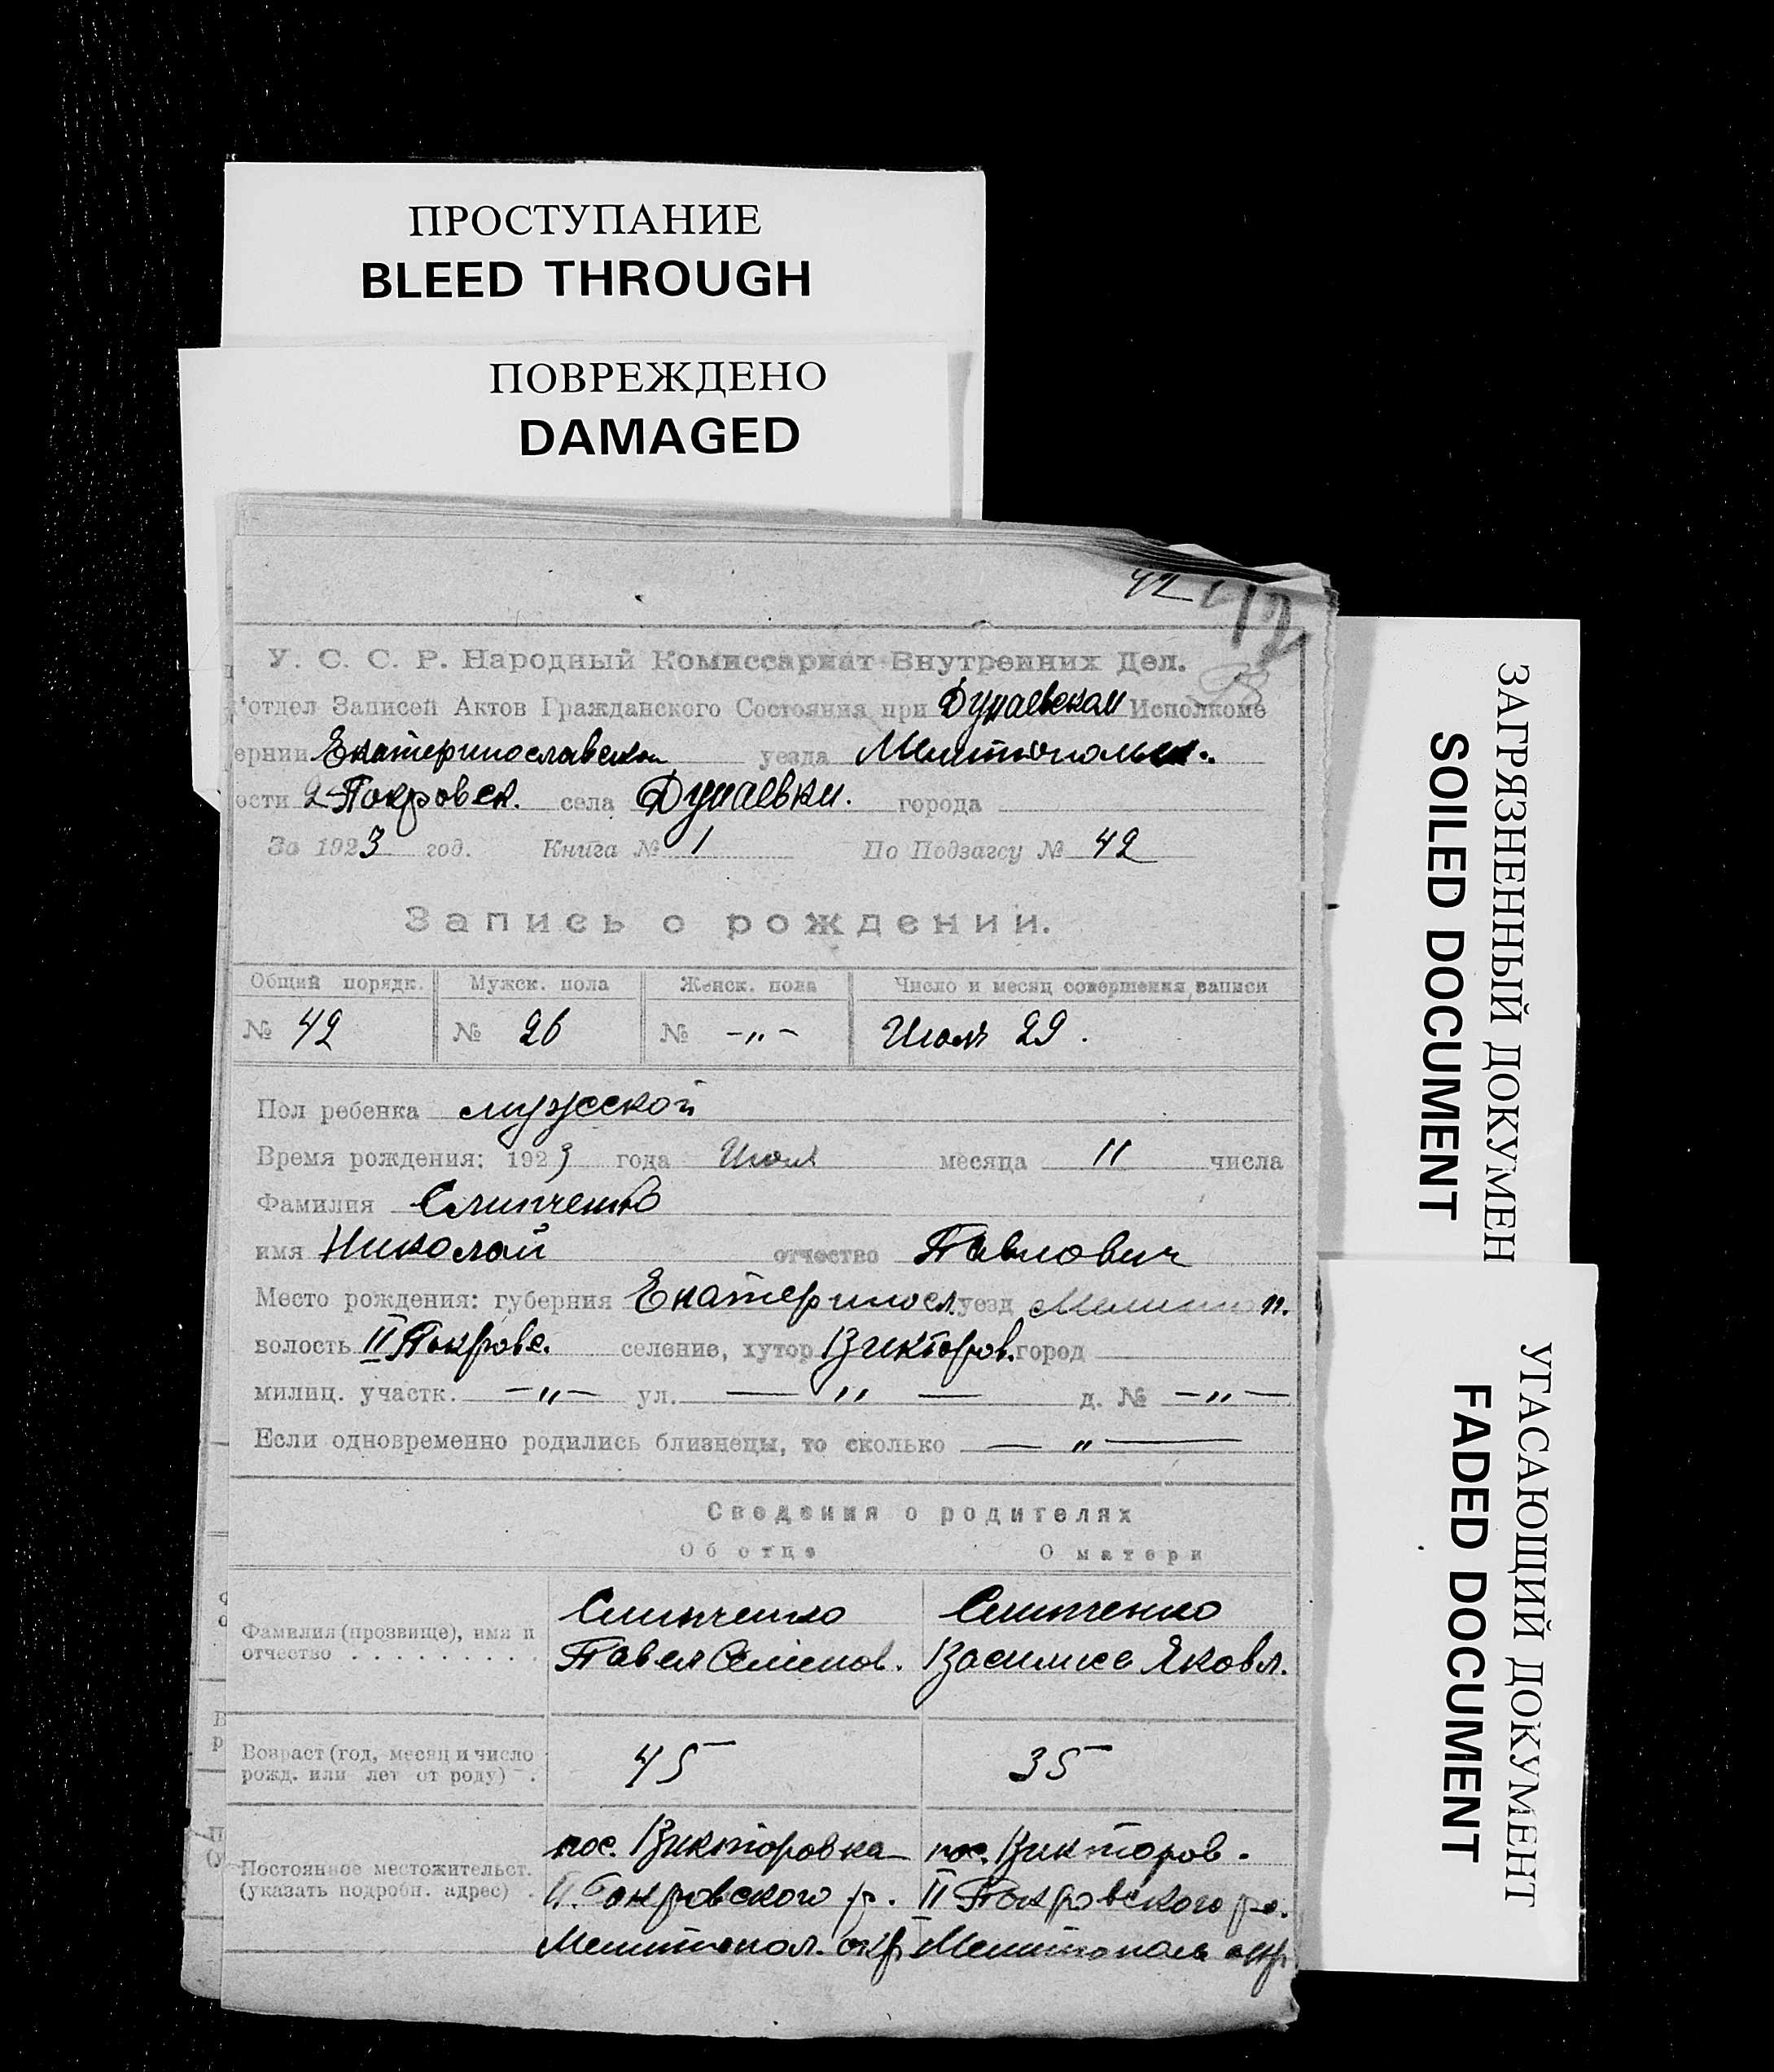 ПРОСТУПАНИЕ
BLEED THROUGH
ПОВРЕЖДЕНО
DAMAGED
42 42
У. С. С. Р. Народный Комиссариат Внутренних Дел.
отдел Записей Актов Гражданского Состояния при Дунаевском Исполкоме
ернии Екатеринославской уезда Мелитопольск.
ости 2 Покровск. села Дунаевки. города
За 1923 год. Книга № 1 По Подзагсу № 42
Запись о рождении.
Общий порядк. Мужск. пола Женск. пола Число и месяц совершения записи
№ 42 № 26 № -〃- Июля 29.
Пол ребенка мужской
Время рождения: 1923 года Июля месяца 11 числа
Фамилия Слипченко
имя Николай отчество Павлович
Место рождения: губерния Екатериносл. уезд Мелитоп.
волость II Покровс. селение, хутор Викторов. город
милиц. участк. —〃— ул. — 〃 — д. № —〃—
Если одновременно родились близнецы, то сколько — 〃 —
Сведения о родителях
Об отце О матери
Фамилия (прозвище), имя и отчество . . . . . . . . .
Слипченко Слипченко
Павел Семенов. Василиса Яковл.
Возраст (год, месяц и число рожд. или лет от роду) .
45 35
Постоянное местожительст. (указать подробн. адрес) .
пос. Викторовка пос. Викторов.
II Покровского р. II Покровского ра.
Мелитопол. окр. Мелитополь окр
ЗАГРЯЗНЕННЫЙ ДОКУМЕН
SOILED DOCUMENT
УГАСАЮЩИЙ ДОКУМЕНТ
FADED DOCUMENT